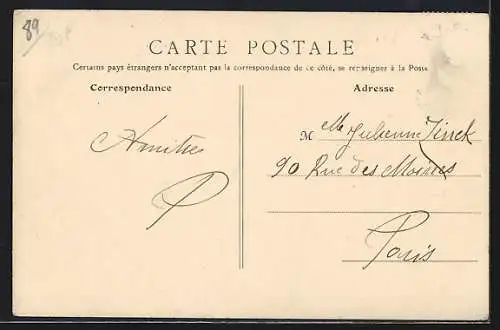 89
CARTE POSTALE
Certains pays étrangers n'acceptant pas la correspondance de ce côté, se renseigner à la Poste
Correspondance
Adresse
Amitiés
P
M elle Julienne Finck
90 Rue des Moines
Paris